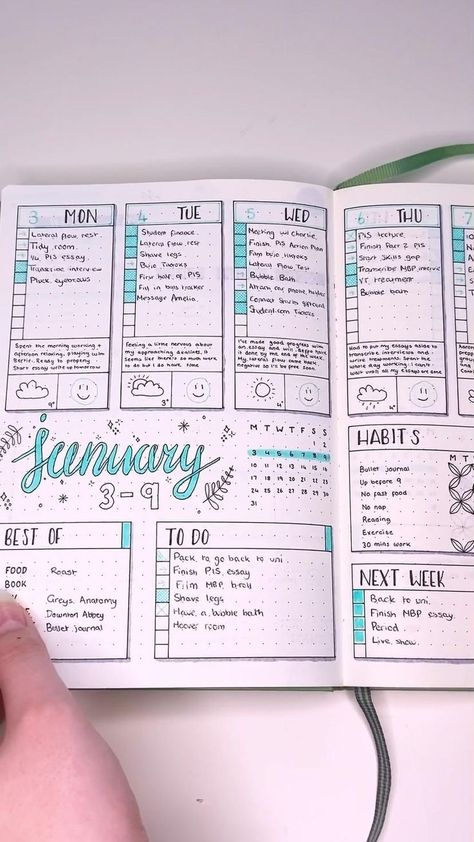 3 MON
Lateral flow test
Tidy room
PIS essay
Transcribe interview
Pluck eyebrows
Spent the morning working +
afternoon relaxing, playing with
Bertie. Ready to properly
start essay write up tomorrow
9°
4 TUE
Student finance
Lateral flow test
Shave legs
Bujo Tiktoks
First half of PIS
Fill in bujo tracker
Message Amelia
Feeling a little nervous about
my approaching deadlines, it
seems like there's so much work
to do but I do have time
3°
5 WED
Meeting w/ Charlie
Finish PIS Action Plan
Film bujo tiktoks
Lateral Flow Test
Bubble Bath
phone holder
Student.com Tiktoks
I've made good progress with
an essay and will
it done by the end of the week.
My lateral flow came back
negative so I'll be free soon!
4°
6 THU
PIS lecture
Finish Part 2 PIS
Start Skills gap
Transcribe MBP interview
VT treatment
Bubble bath
Had to put my essays aside to
transcribe interviews and
write treatments. Spent the
whole day working. I can't
wait until all my essays are done
7
January
3-9
M T W T F S S
1 2
3 4 5 6 7 8 9
10 11 12 13 14 15 16
17 18 19 20 21 22 23
24 25 26 27 28 29 30
31
HABITS
M T
Bullet journal
Up before 9
No fast food
No nap
Reading
Exercise
30 mins work
BEST OF
FOOD Roast
BOOK
Greys Anatomy
Downton Abbey
Bullet journal
TO DO
Pack to go back to uni
Finish PIS essay
Film MBP b roll
Shave legs
Have a bubble bath
Hoover room
NEXT WEEK
Back to uni
Finish MBP essay
Period
Live show